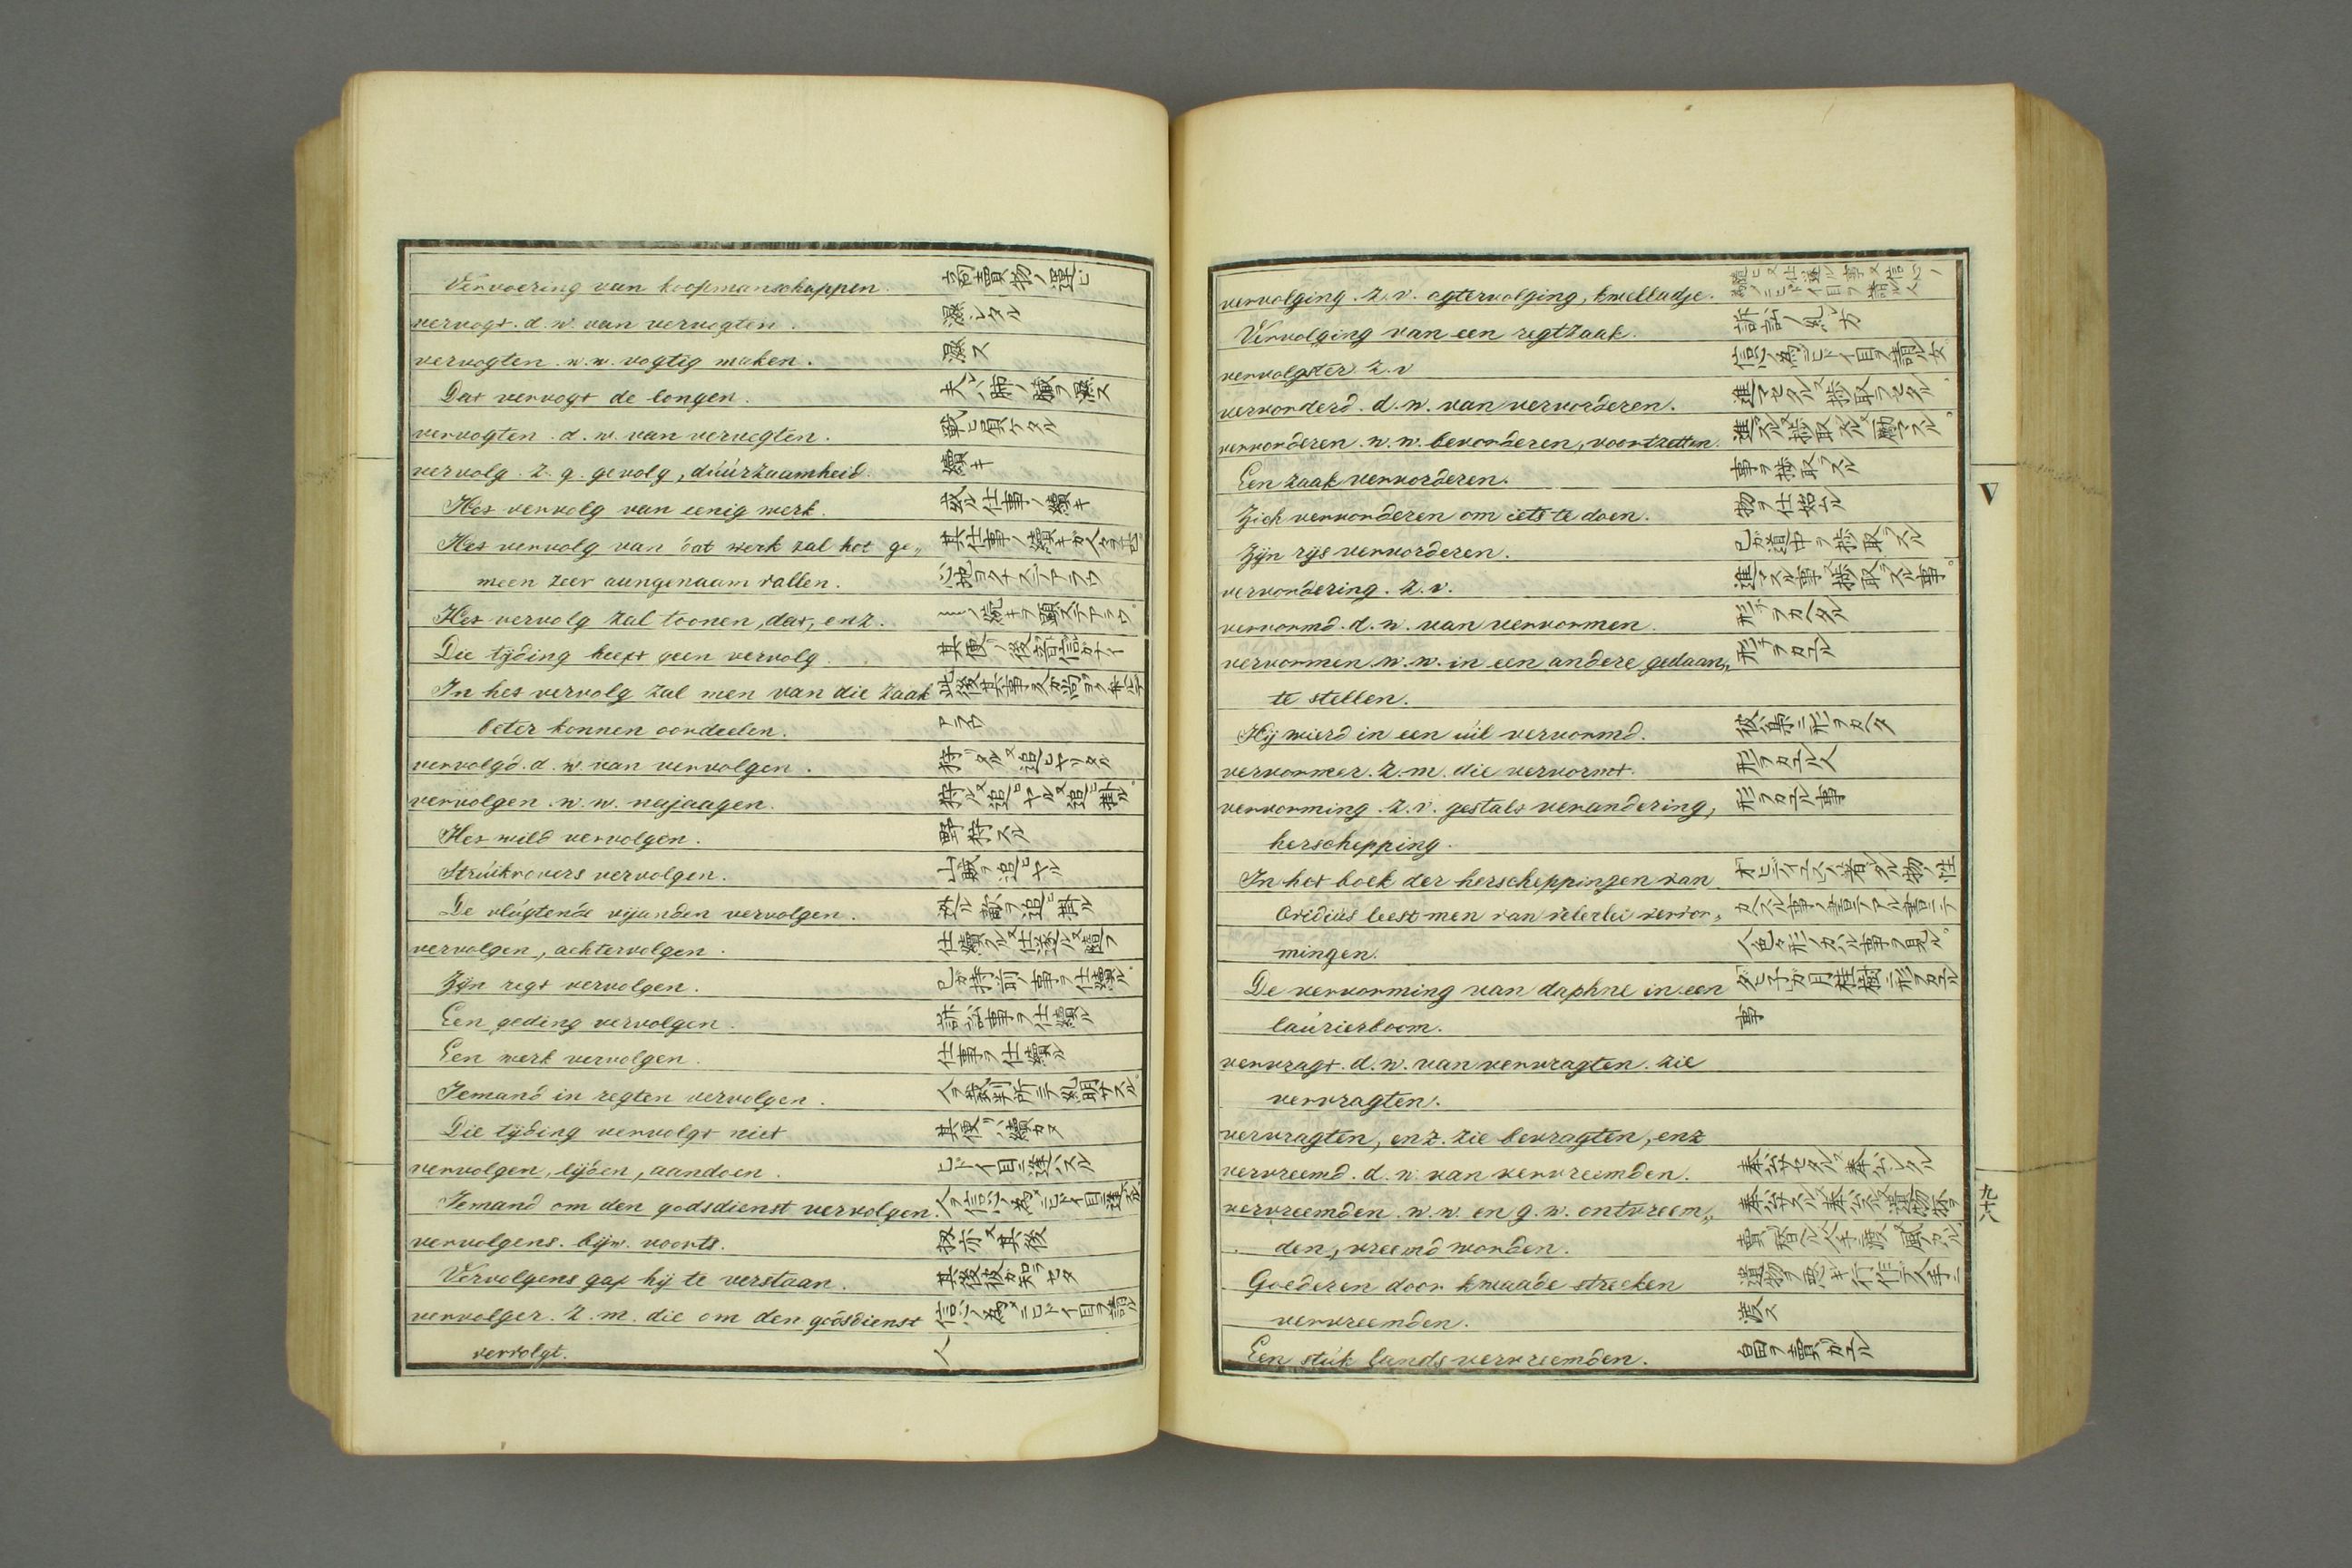 Vervoering van koopmanschappen. 商賣物ノ運ビ
vervogt. d. w. van vervogten. 濕シタル
vervogten. w. w. vogtig maken. 濕ス
Dat vervogt de longen. 夫ハ肺ノ臓ヲ濕ス
vervogten. d. w. van vervegten. 戰ヒ負ケタル
vervolg. z. g. gevolg, dúúrzaamheid. 續キ
Het vervolg van eenig werk. 或ル仕事ノ續キ
Het vervolg van dat werk zal het ge„ 其仕事ノ續キガ
meen zeer aangenaam vallen. 心地ヨクナスデアラウ
Het vervolg zal toonen, dat, enz. ノ續キヲ顕スデアラウ
Die tijding heeft geen vervolg. 其便リノ後音信ガナイ
In het vervolg zal men van die zaak 此後其事ヲ
beter konnen oordeelen. アラウ
vervolgd. d. w. van vervolgen. 狩リタル又追ヒヤリタル
vervolgen. w. w. najaagen. 狩ル又追ヒヤル又追ヒ掛ル
Het wild vervolgen. 野狩スル
Strúikrovers vervolgen. 山賊ヲ追ヒヤル
De vlúgtende vijanden vervolgen. 迯ル敵ヲ追ヒ掛ル
vervolgen, achtervolgen. 仕續クル又仕遂ル又随フ
Zijn regt vervolgen. 己ガ持前ノ事ヲ仕續ル
Een geding vervolgen. 訴訟事ヲ仕續ル
Een werk vervolgen. 仕事ヲ仕續ル
Iemand in regten vervolgen. 人ヲ裁判所ニテ糺明サスル
Die tijding vervolgt niet 其便リハ續カヌ
vervolgen, lijden, aandoen. ヒドイ目ニ逢ハスル
Iemand om den godsdienst vervolgen. 人ヲ信心ノ為メニヒドイ目ニ逢ハスル
vervolgens. bijw. voorts. 扨亦又其後
Vervolgens gaf hij te verstaan. 其後彼ガ知ラセタ
vervolger. z. m. die om den godsdienst 信心ノ為メニヒドイ目ヲ
vervolgt. 人
vervolging. z. v. agtervolging, kwelladje.
Vervolging van een regtzaak. 訴訟ノ糺シ方
vervolgster z. v 信心ノ為ニヒドイ目ヲ
vervorderd. d. w. van vervorderen. 進マセタル又捗取ラセタル
vervorderen. w. w. bevorderen, voortzetten. 進マスル又捗取ラスル又勵マスル
Een zaak vervorderen. 事ヲ捗取ラスル
Zich vervorderen om iets te doen. 物ヲ仕始ル
Zijn rijs vervorderen. 己ガ道中ヲ捗取ラスル
vervordering. z. v. 進マスル事又捗取ラスル事
vervormd. d. w. van vervormen. 形チヲカヘタル
vervormen. w. w. in een andere gedaan„ 形チヲカエル
te stellen.
Hij wierd in een úil vervormd. 彼ハ梟ニ形ヲカヘタ
vervormer. z. m. die vervormt. 形ヲカエル人
vervorming. z. v. gestalt verandering, 形ヲカエル事
herschepping.
In het boek der herscheppingen van
Ovidiús leest men van velerlei vervor„
mingen. 色々形ノカハル事ヲ見ル
De vervorming van daphne in een 月桂樹ニ形ヲカエル
laúrierboom. 事
vervragt. d. w. van vervragten. zie
vervragten.
vervragten, enz. zie bevragten, enz
vervreemd. d. w. van vervreemden.
vervreemden. w. w. en g. w. ontvreem„
den, vreemd worden.
Goederen door kwaade streeken 遺物ヲ悪キ行作デ人手ニ
vervreemden. 渡ス
Een stúk lands vervreemden. 畠ヲ賣
V
九十六